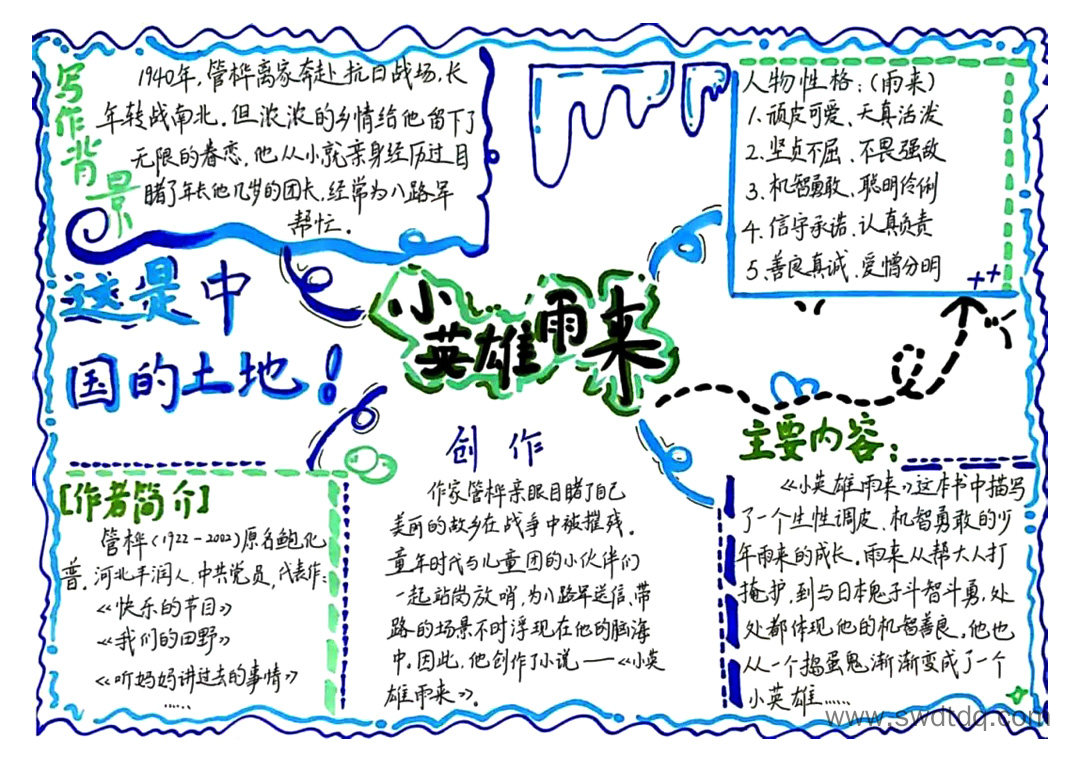 写作背景
1940年,管桦离家奔赴抗日战场,长
年转战南北.但浓浓的乡情给他留下了
无限的眷恋,他从小就亲身经历过目
睹了年长他几岁的团长,经常为八路军
帮忙.
人物性格:(雨来)
1.顽皮可爱、天真活泼
2.坚贞不屈、不畏强敌
3.机智勇敢、聪明伶俐
4.信守承诺、认真负责
5.善良真诚、爱憎分明
这是中
国的土地!
小英雄雨来
[作者简介]
管桦(1922-2002)原名鲍化
普.河北丰润人,中共党员,代表作:
《快乐的节目》
《我们的田野》
《听妈妈讲过去的事情》
……
创作
作家管桦亲眼目睹了自己
美丽的故乡在战争中被摧残.
童年时代与儿童团的小伙伴们
一起站岗放哨,为八路军送信、带
路的场景不时浮现在他的脑海
中.因此,他创作了小说——《小英
雄雨来》.
主要内容:
《小英雄雨来》这本书中描写
了一个生性调皮、机智勇敢的少
年雨来的成长.雨来从帮大人打
掩护,到与日本鬼子斗智斗勇,处
处都体现他的机智善良.他也
从一个捣蛋鬼渐渐变成了一个
小英雄……
www.swdtdq.com